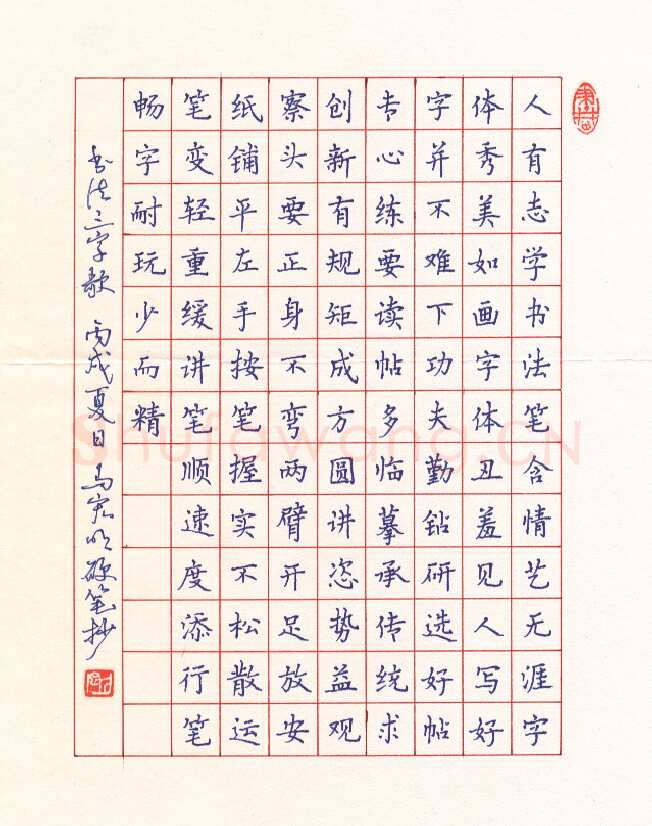 人有志学书法笔含情艺无涯字
体秀美如画字体丑羞见人写好
字并不难下功夫勤钻研选好帖
专心练要读帖多临摹承传统求
创新有规矩成方圆讲恣势益观
察头要正身不弯两臂开足放安
纸铺平左手按笔握实不松散运
笔变轻重缓讲笔顺速度添行笔
畅字耐玩少而精
书法三字歌 丙戌夏日马宏明硬笔抄
Shufawang.CN